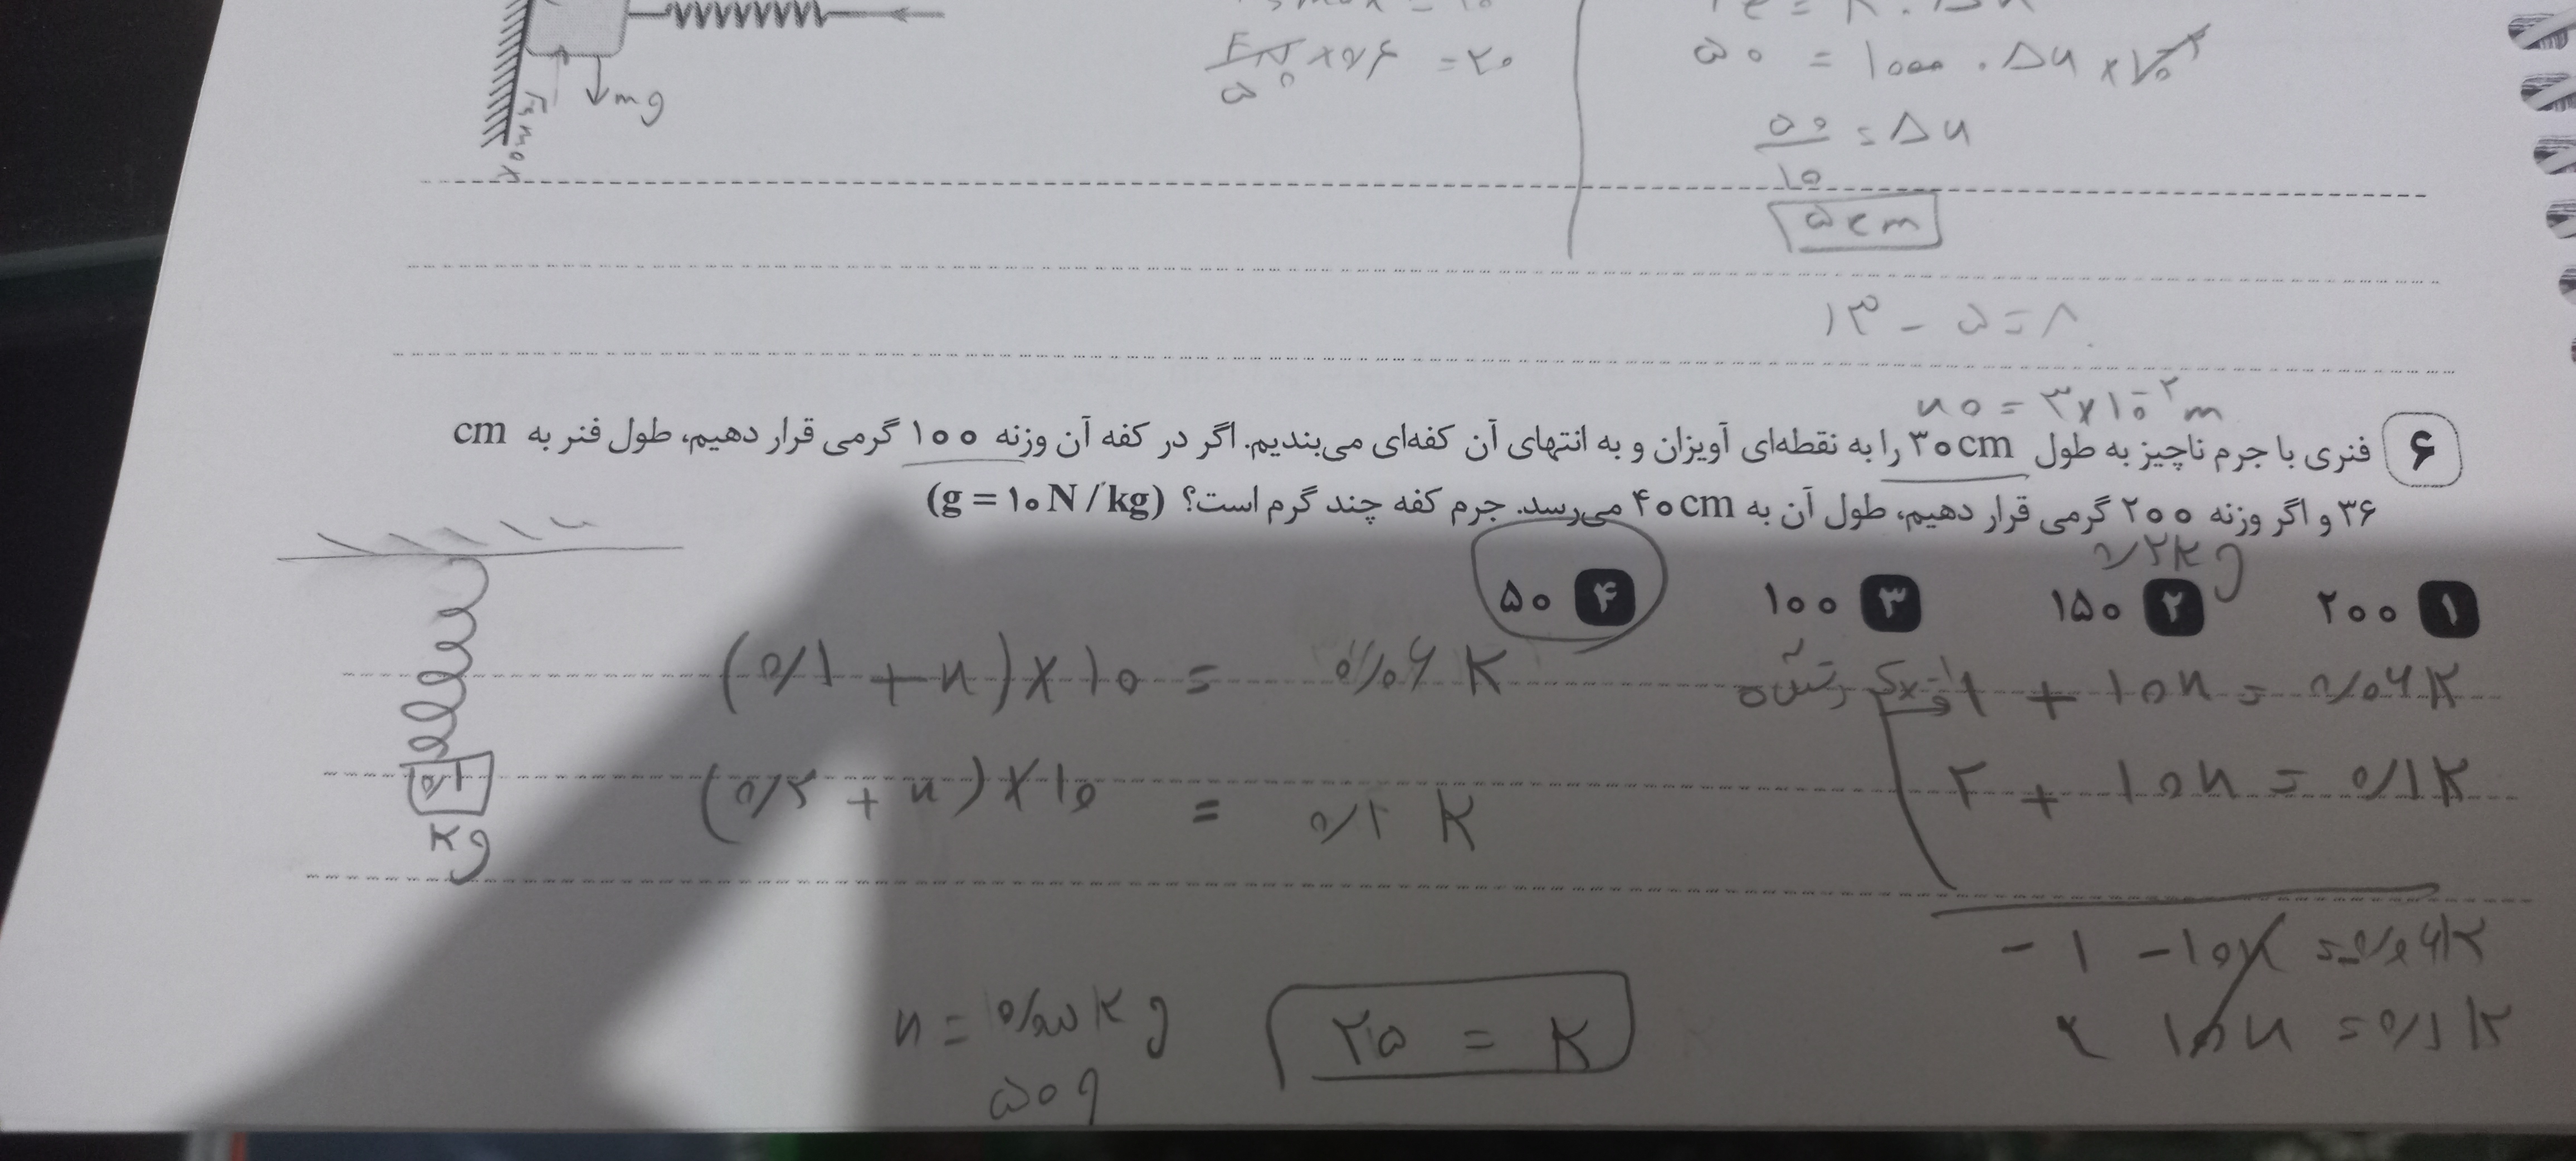 mg
۵۰ = ۱۰۰۰ . Δx × ۱۰⁻²
۵۰/۱۰ = Δx
۵cm
۱۳ - ۵ = ۸
x۰ = ۳×۱۰⁻²m
۶ فنری با جرم ناچیز به طول ۳۰cm را به نقطه‌ای آویزان و به انتهای آن کفه‌ای می‌بندیم. اگر در کفه آن وزنه ۱۰۰ گرمی قرار دهیم، طول فنر به cm
۳۶ و اگر وزنه ۲۰۰ گرمی قرار دهیم، طول آن به ۴۰cm می‌رسد. جرم کفه چند گرم است؟ (g = ۱۰N/kg)
۰/۲kg
۱ ۲۰۰ ۲ ۱۵۰ ۳ ۱۰۰ ۴ ۵۰
(۰/۱ + x)×۱۰ = ۰/۰۶ K
۱ + ۱۰x = ۰/۰۶K
(۰/۲ + x)×۱۰ = ۰/۱ K
۲ + ۱۰x = ۰/۱K
۰/۱
kg
-۱ -۱۰x = -۰/۰۶K
۲ ۱۰x = ۰/۱K
x = ۰/۰۵kg
۲۵ = K
۵۰g